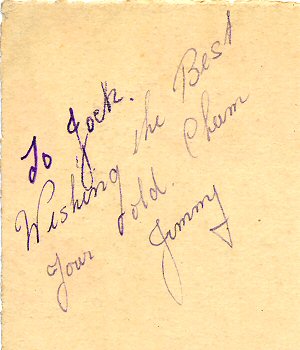 To Jock.
Wishing the Best
Your Old. Chum
Jimmy